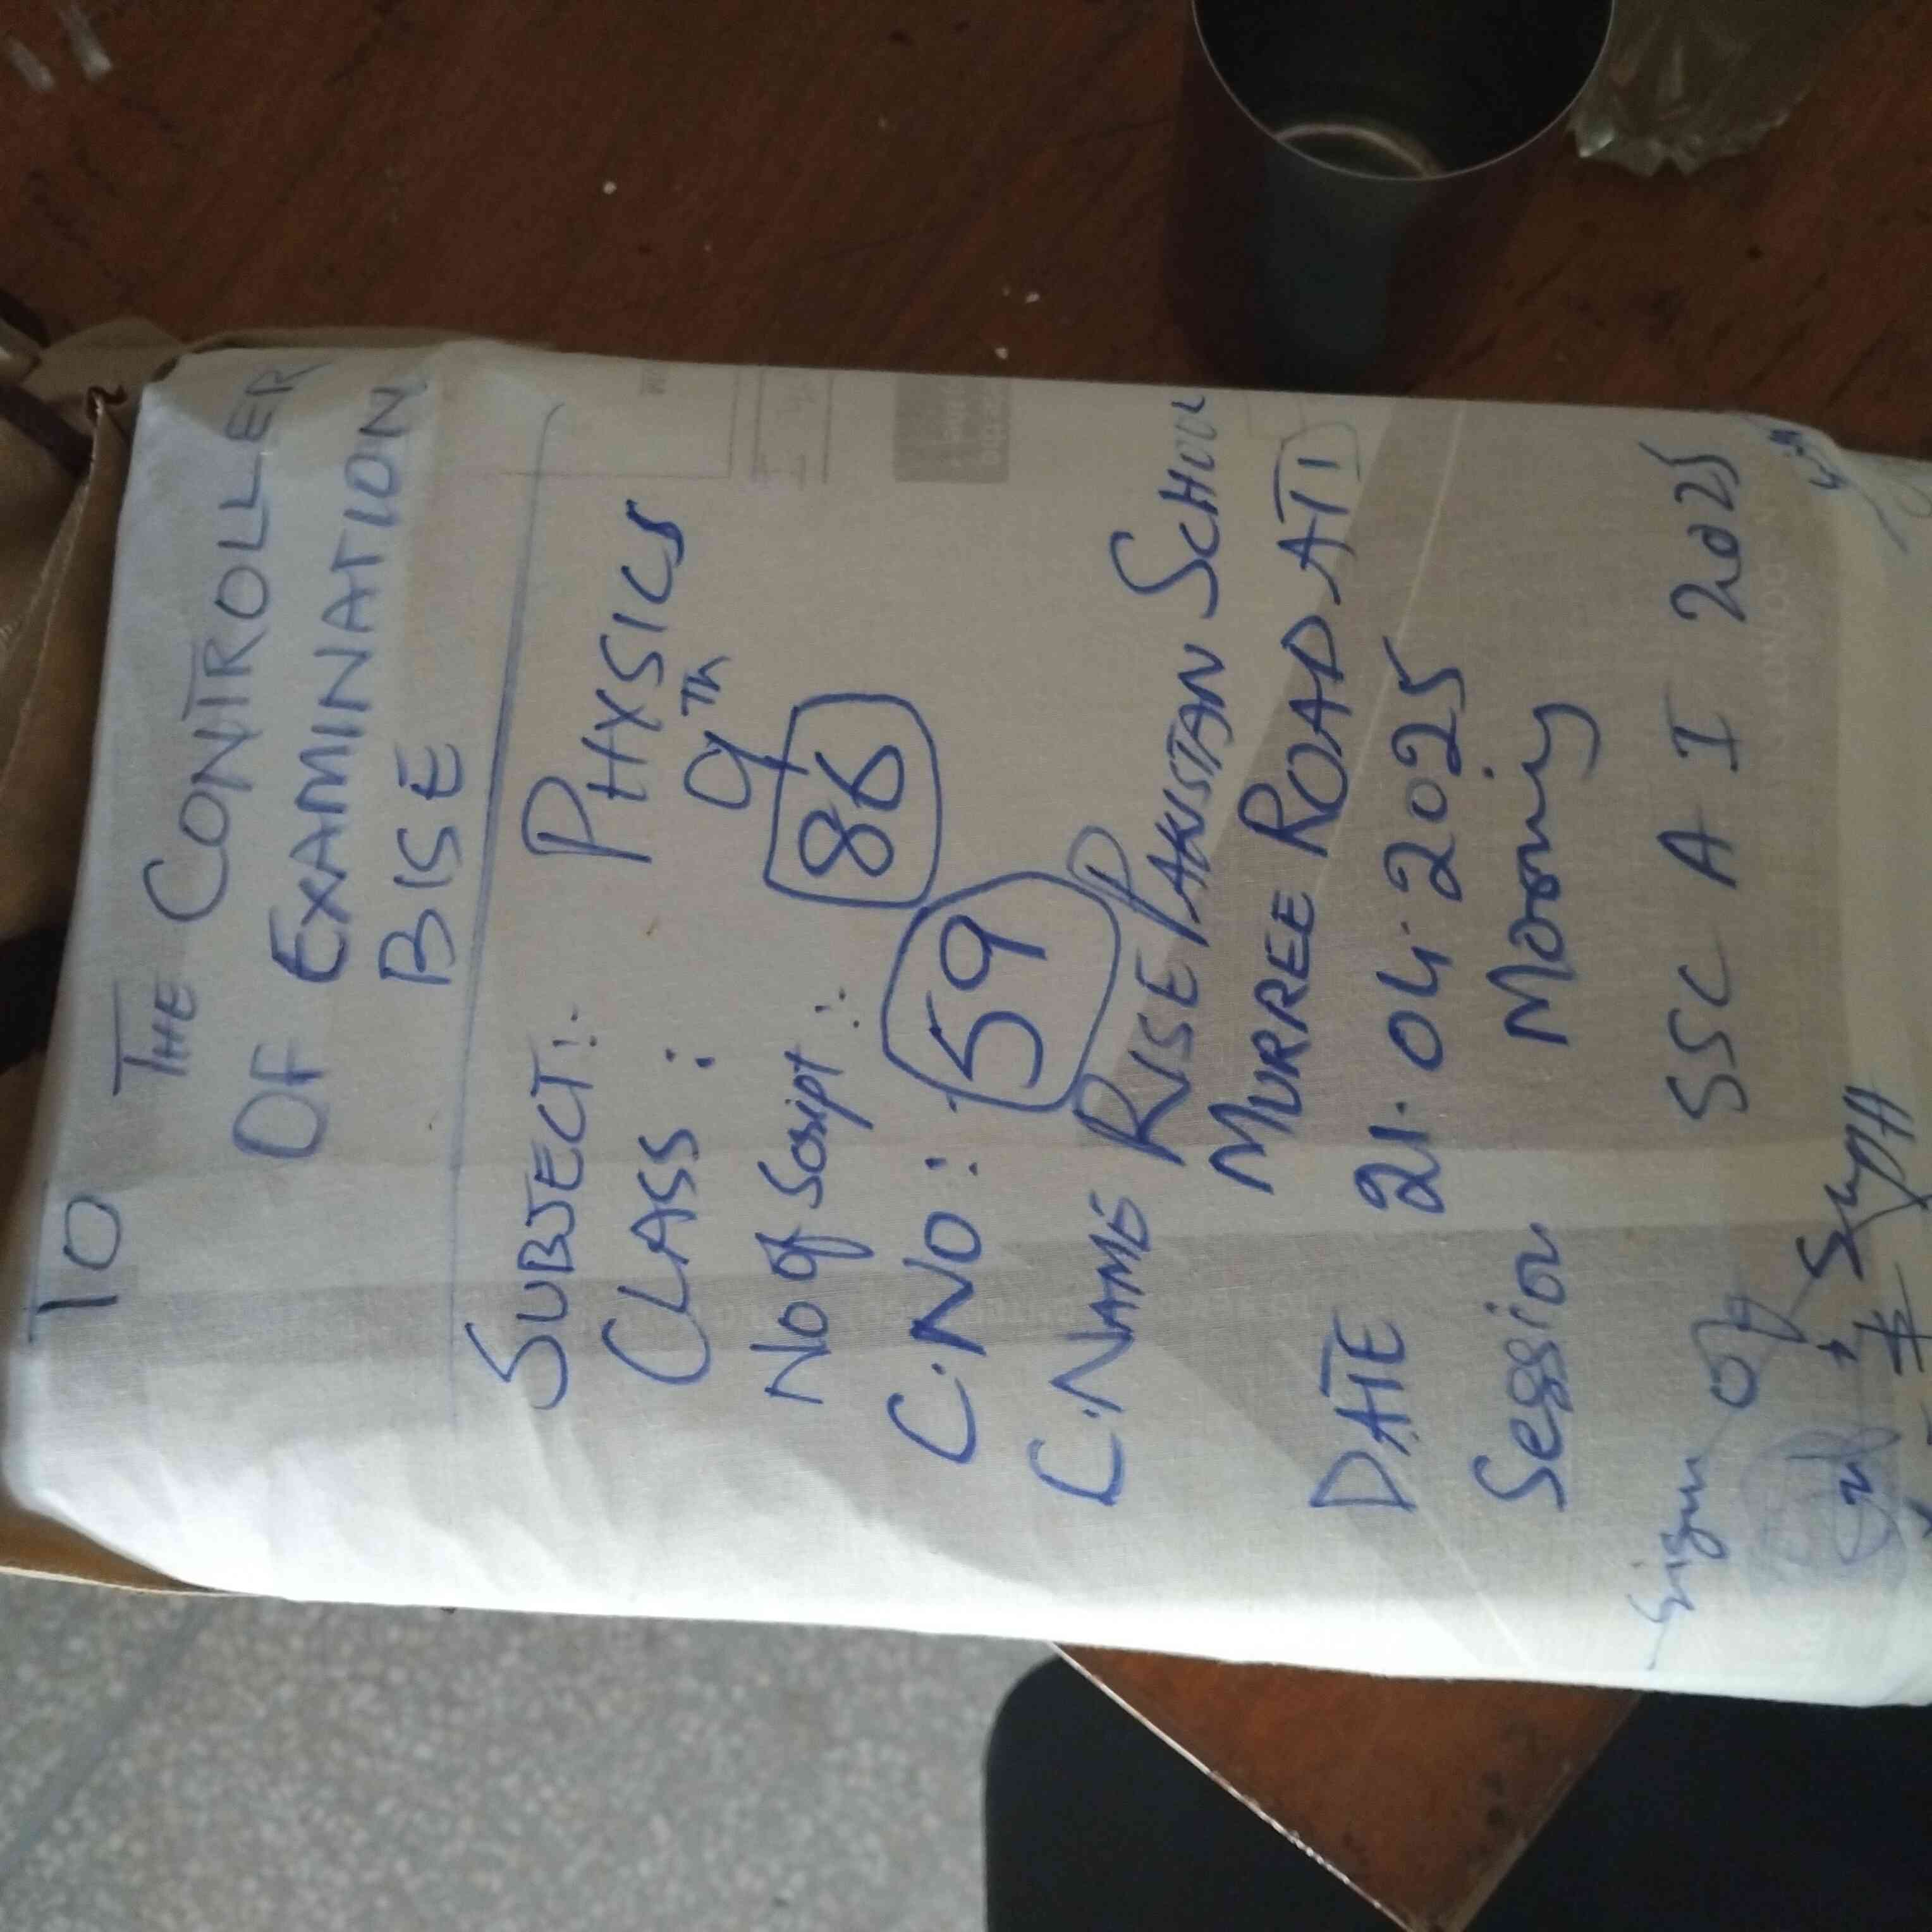 TO
THE CONTROLLER
OF EXAMINATION
BISE
SUBJECT:- PHYSICS
CLASS : 9TH
No of Script :- 86
C.NO :- 59
C.NAME RISE PAKISTAN SCHOOL
MURREE ROAD ATI
DATE 21.04.2025
Session Morning
SSC A I 2025
Sign of Supdt